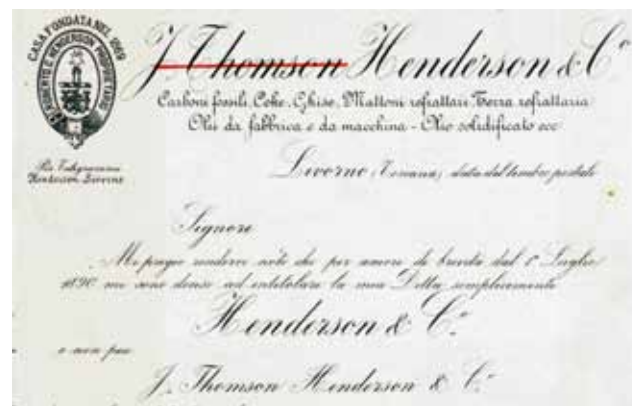 CASA FONDATA NEL 1869
ROBERTO C. HENDERSON PROPRIETARIO
J. Thomson Henderson & Cº
Carboni fossili, Coke, Ghise, Mattoni refrattari Terra refrattaria
Olii da fabbrica e da macchina - Olio solidificato ecc
Per Telegrammi
Henderson Livorno
Livorno (Toscana) data del timbro postale
Signore
Mi pregio rendervi noto che per amore di brevità dal 1º Luglio
1890 mi sono deciso ad intitolare la mia Ditta semplicemente
Henderson & Cº
e non più
J. Thomson Henderson & Cº